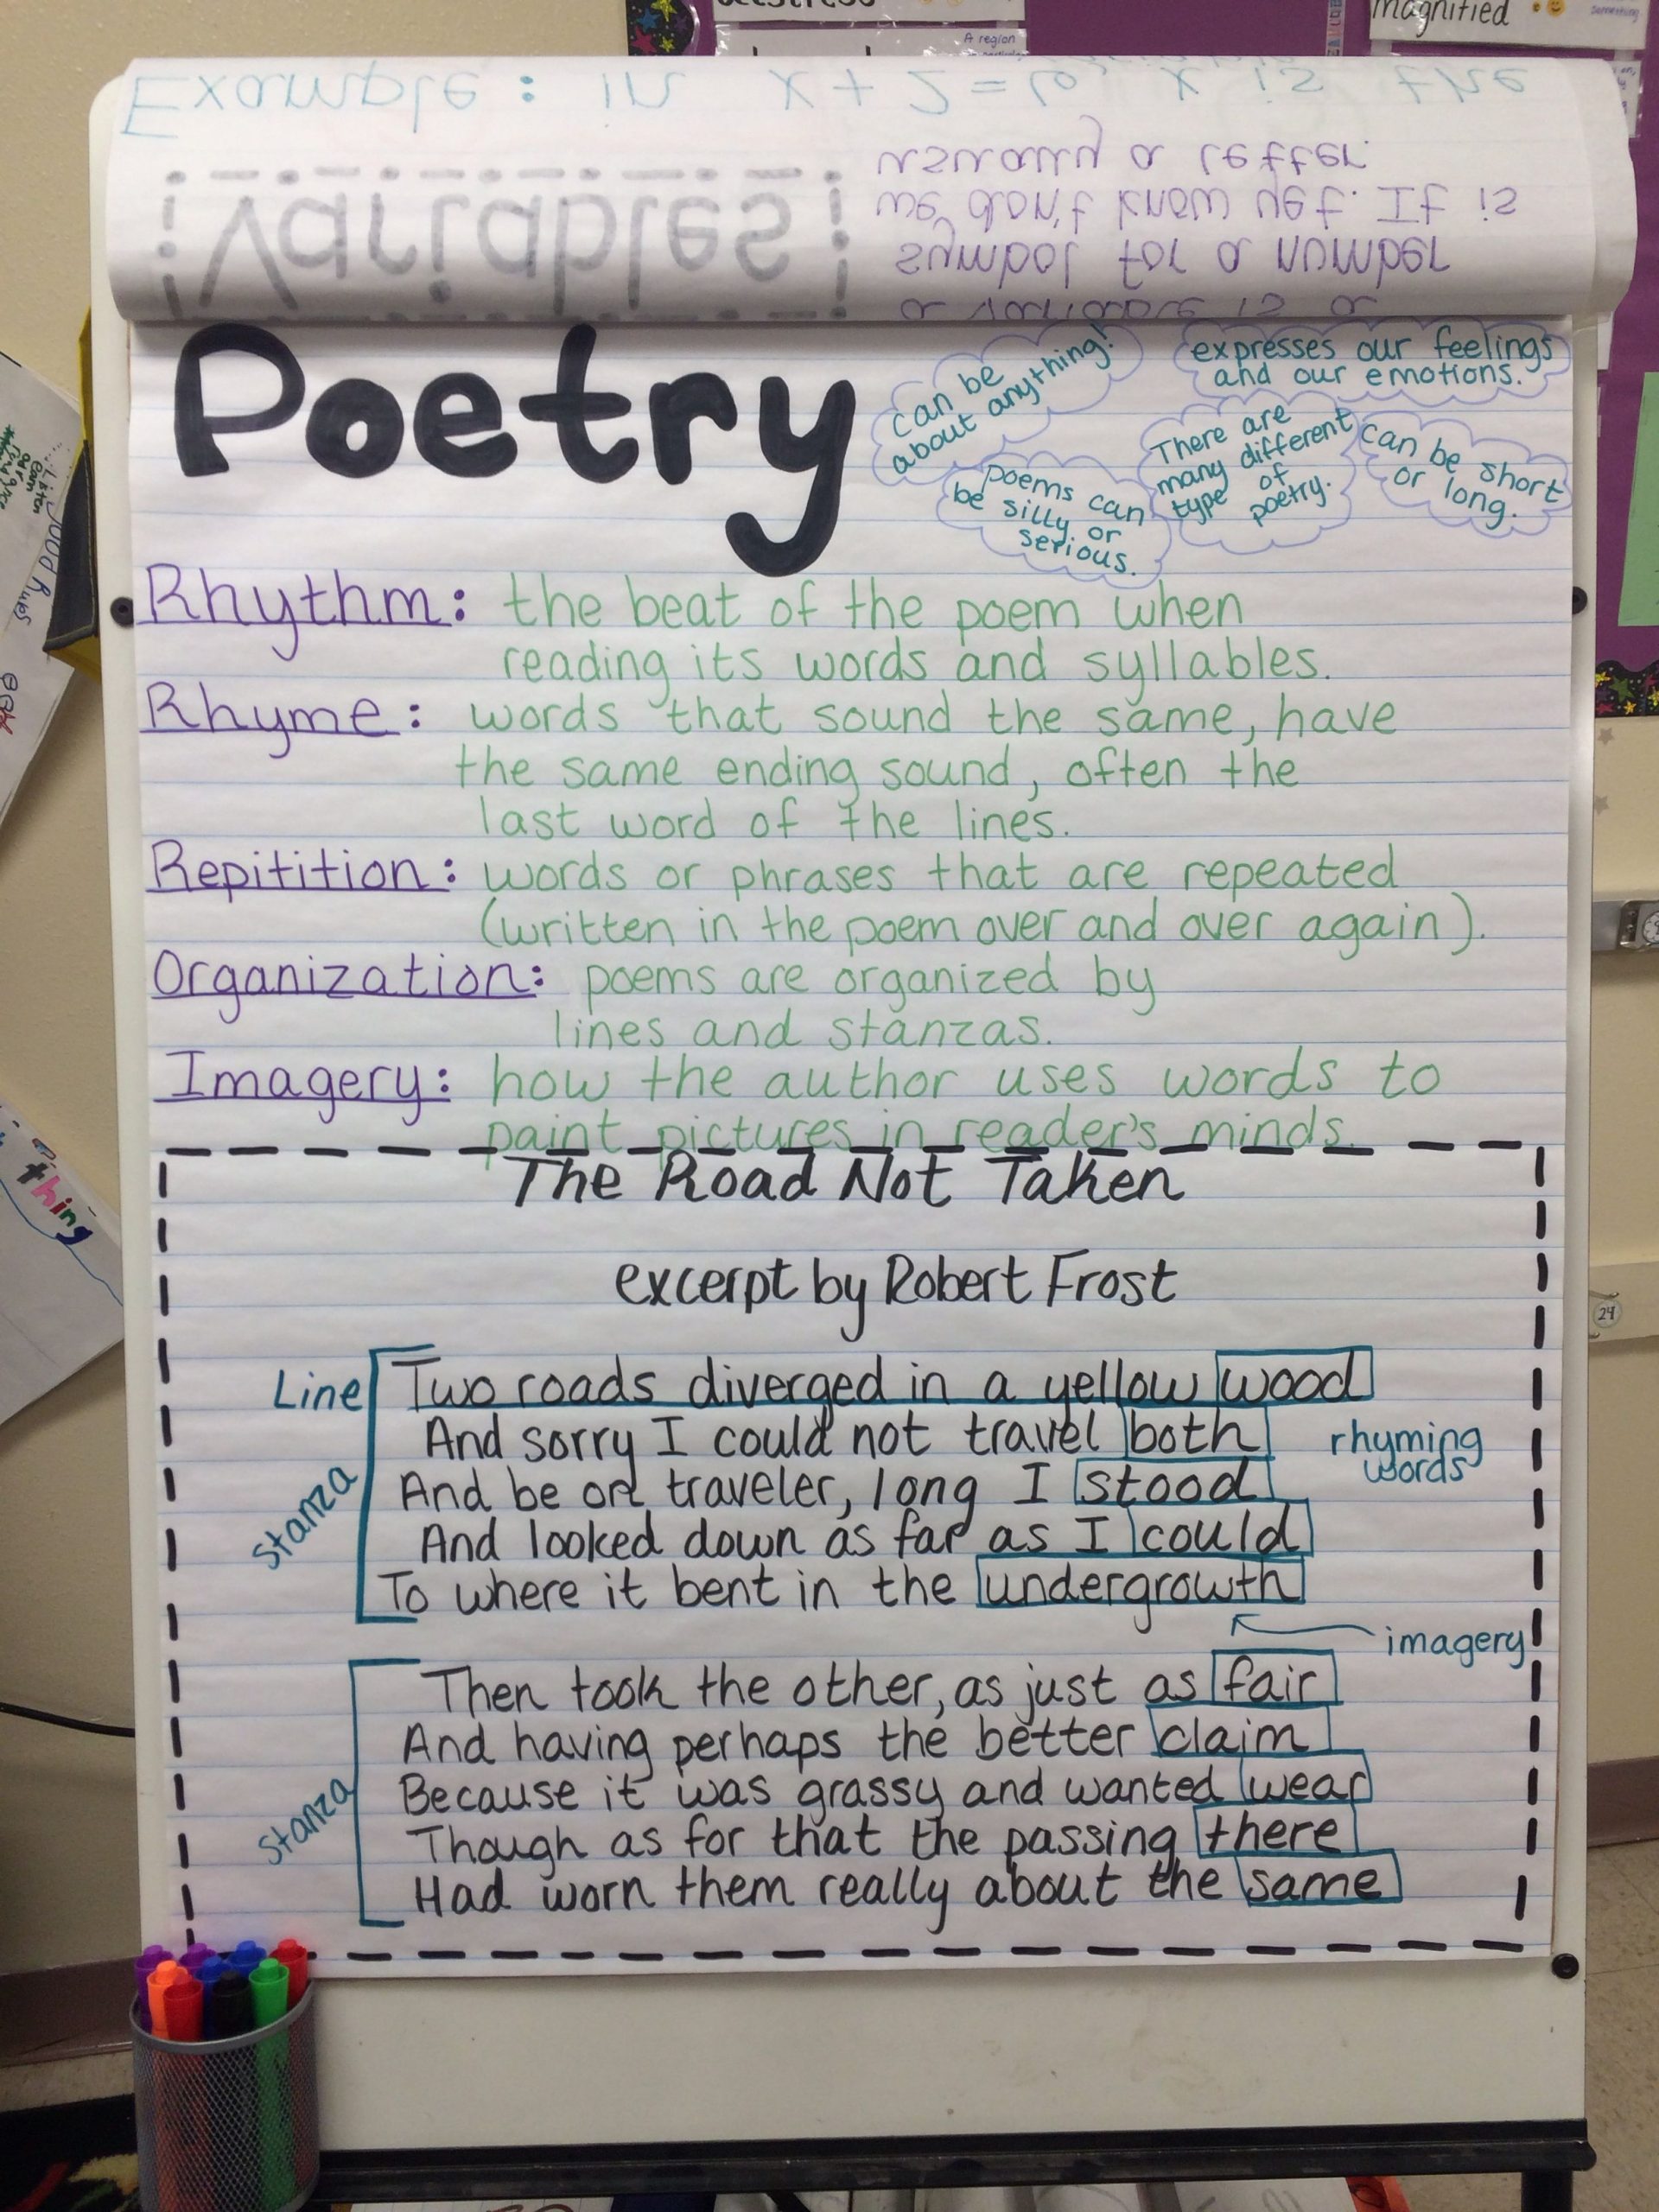 magnified
A region
Example: in x + 2 = 6, x is the
Variables
a variable is a
symbol for a number
we don't know yet. It is
usually a letter.
Poetry
can be
about anything!
expresses our feelings
and our emotions.
poems can
be silly or
serious.
There are
many different
type of
poetry.
can be short
or long.
Rhythm: the beat of the poem when
reading its words and syllables.
Rhyme: words that sound the same, have
the same ending sound, often the
last word of the lines.
Repitition: words or phrases that are repeated
(written in the poem over and over again).
Organization: poems are organized by
lines and stanzas.
Imagery: how the author uses words to
paint pictures in reader's minds.
The Road Not Taken
excerpt by Robert Frost
Line Two roads diverged in a yellow wood
And sorry I could not travel both
rhyming
words
And be one traveler, long I stood
Stanza
And looked down as far as I could
To where it bent in the undergrowth
imagery
Then took the other, as just as fair
And having perhaps the better claim
Because it was grassy and wanted wear
Stanza
Though as for that the passing there
Had worn them really about the same
thing
24